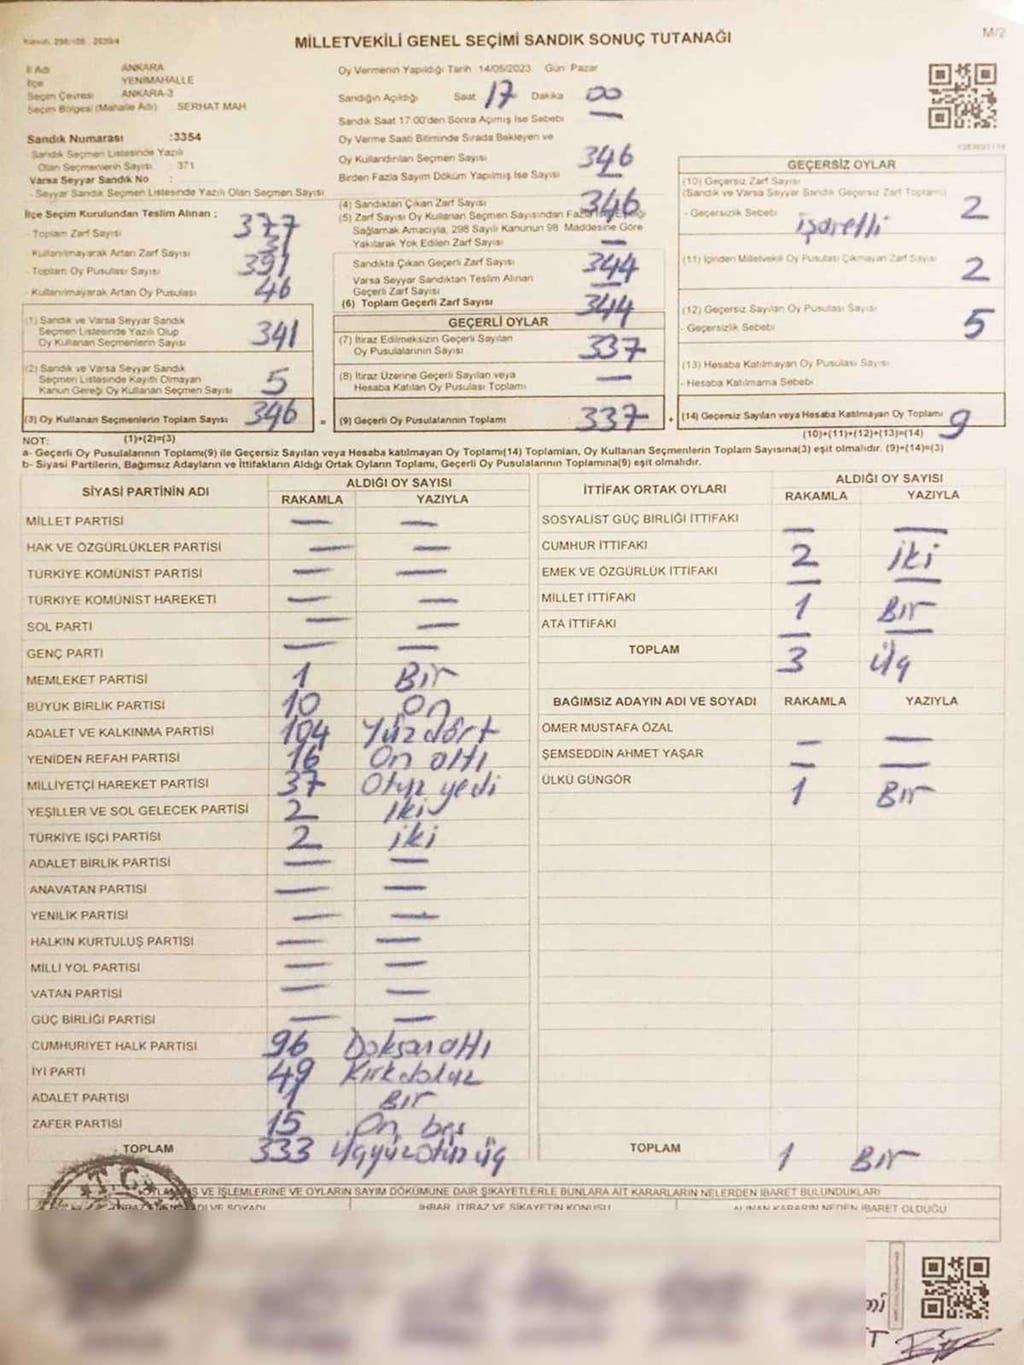 MİLLETVEKİLİ GENEL SEÇİMİ SANDIK SONUÇ TUTANAĞI
M/2
İl Adı ANKARA
İlçe YENİMAHALLE
Seçim Çevresi ANKARA-3
Seçim Bölgesi (Mahalle Adı) SERHAT MAH
Sandık Numarası :3354
Sandık Seçmen Listesinde Yazılı
Olan Seçmenlerin Sayısı 371
Varsa Seyyar Sandık No :
Seyyar Sandık Seçmen Listesinde Yazılı Olan Seçmen Sayısı
İlçe Seçim Kurulundan Teslim Alınan :
- Toplam Zarf Sayısı 377
- Kullanılmayarak Artan Zarf Sayısı
- Toplam Oy Pusulası Sayısı 391
- Kullanılmayarak Artan Oy Pusulası 46
(1) Sandık ve Varsa Seyyar Sandık
Seçmen Listesinde Yazılı Olup
Oy Kullanan Seçmenlerin Sayısı 341
(2) Sandık ve Varsa Seyyar Sandık
Seçmen Listesinde Kayıtlı Olmayan
Kanun Gereği Oy Kullanan Seçmen Sayısı 5
(3) Oy Kullanan Seçmenlerin Toplam Sayısı 346 =
Oy Vermenin Yapıldığı Tarih 14/05/2023 Gün Pazar
Sandığın Açıldığı Saat 17 Dakika 00
Sandık Saat 17:00'den Sonra Açılmış İse Sebebi —
Oy Verme Saati Bitiminde Sırada Bekleyen ve
Oy Kullandırılan Seçmen Sayısı 346
Birden Fazla Sayım Döküm Yapılmış İse Sayısı —
(4) Sandıktan Çıkan Zarf Sayısı 346
(5) Zarf Sayısı Oy Kullanan Seçmen Sayısından Fazla İse Eşitliği
Sağlamak Amacıyla, 298 Sayılı Kanunun 98 Maddesine Göre
Yakılarak Yok Edilen Zarf Sayısı —
Sandıkta Çıkan Geçerli Zarf Sayısı 344
Varsa Seyyar Sandıktan Teslim Alınan
Geçerli Zarf Sayısı —
(6) Toplam Geçerli Zarf Sayısı 344
GEÇERLİ OYLAR
(7) İtiraz Edilmeksizin Geçerli Sayılan
Oy Pusulalarının Sayısı 337
(8) İtiraz Üzerine Geçerli Sayılan veya
Hesaba Katılan Oy Pusulası Toplamı —
(9) Geçerli Oy Pusulalarının Toplamı 337 +
GEÇERSİZ OYLAR
(10) Geçersiz Zarf Sayısı
(Sandık ve Varsa Seyyar Sandık Geçersiz Zarf Toplamı) 2
- Geçersizlik Sebebi işaretli
(11) İçinden Milletvekili Oy Pusulası Çıkmayan Zarf Sayısı 2
(12) Geçersiz Sayılan Oy Pusulası Sayısı 5
- Geçersizlik Sebebi
(13) Hesaba Katılmayan Oy Pusulası Sayısı
- Hesaba Katılmama Sebebi
(14) Geçersiz Sayılan veya Hesaba Katılmayan Oy Toplamı 9
NOT: (1)+(2)=(3) (10)+(11)+(12)+(13)=(14)
a- Geçerli Oy Pusulalarının Toplamı(9) ile Geçersiz Sayılan veya Hesaba katılmayan Oy Toplamı(14) Toplamları, Oy Kullanan Seçmenlerin Toplam Sayısına(3) eşit olmalıdır. (9)+(14)=(3)
b- Siyasi Partilerin, Bağımsız Adayların ve İttifakların Aldığı Ortak Oyların Toplamı, Geçerli Oy Pusulalarının Toplamına(9) eşit olmalıdır.
SİYASİ PARTİNİN ADI ALDIĞI OY SAYISI
RAKAMLA YAZIYLA
MİLLET PARTİSİ — —
HAK VE ÖZGÜRLÜKLER PARTİSİ — —
TÜRKİYE KOMÜNİST PARTİSİ — —
TÜRKİYE KOMÜNİST HAREKETİ — —
SOL PARTİ — —
GENÇ PARTİ — —
MEMLEKET PARTİSİ 1 Bir
BÜYÜK BİRLİK PARTİSİ 10 On
ADALET VE KALKINMA PARTİSİ 104 Yüzdört
YENİDEN REFAH PARTİSİ 16 On altı
MİLLİYETÇİ HAREKET PARTİSİ 37 Otuz yedi
YEŞİLLER VE SOL GELECEK PARTİSİ 2 iki
TÜRKİYE İŞÇİ PARTİSİ 2 iki
ADALET BİRLİK PARTİSİ — —
ANAVATAN PARTİSİ — —
YENİLİK PARTİSİ — —
HALKIN KURTULUŞ PARTİSİ — —
MİLLİ YOL PARTİSİ — —
VATAN PARTİSİ — —
GÜÇ BİRLİĞİ PARTİSİ — —
CUMHURİYET HALK PARTİSİ 96 Doksan altı
İYİ PARTİ 49 Kırkdokuz
ADALET PARTİSİ 1 Bir
ZAFER PARTİSİ 15 On beş
TOPLAM 333 üçyüzotuz üç
İTTİFAK ORTAK OYLARI ALDIĞI OY SAYISI
RAKAMLA YAZIYLA
SOSYALİST GÜÇ BİRLİĞİ İTTİFAKI — —
CUMHUR İTTİFAKI 2 iki
EMEK VE ÖZGÜRLÜK İTTİFAKI — —
MİLLET İTTİFAKI 1 Bir
ATA İTTİFAKI — —
TOPLAM 3 üç
BAĞIMSIZ ADAYIN ADI VE SOYADI RAKAMLA YAZIYLA
ÖMER MUSTAFA ÖZAL — —
ŞEMSEDDİN AHMET YAŞAR — —
ÜLKÜ GÜNGÖR 1 Bir
TOPLAM 1 Bir
T.C.
VE İŞLEMLERİNE VE OYLARIN SAYIM DÖKÜMÜNE DAİR ŞİKAYETLERLE BUNLARA AİT KARARLARIN NELERDEN İBARET BULUNDUKLARI
ADI VE SOYADI İHBAR, İTİRAZ VE ŞİKAYETİN KONUSU ALINAN KARARIN NEDEN İBARET OLDUĞU